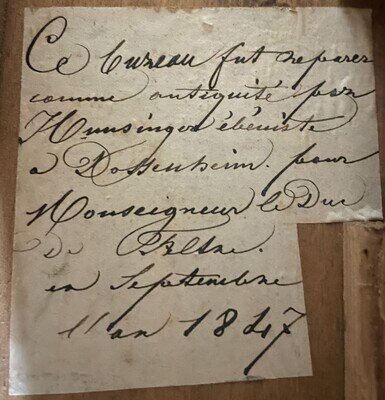 Ce bureau fut reparer
comme antiquité par
Hunsinger ébéniste
a Dossenheim. pour
Monseigneur le Duc
De Feltre.
en Septembre
l'an 1847